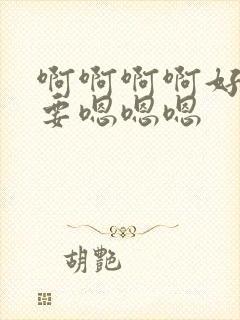 啊啊啊啊好
要嗯嗯嗯
胡艷